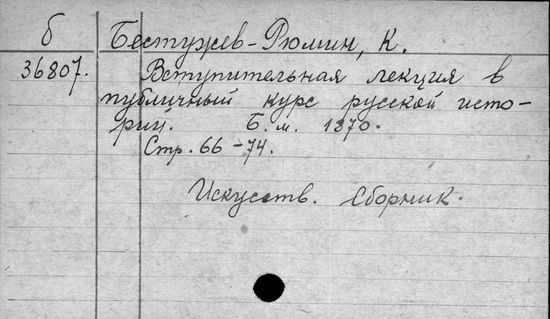 б Бестужев-Рюмин, К.
36807. Вступительная лекция в
публичный курс русской исто-
рии. Б. м. 1870.
Стр. 66-74.
Искусств. сборник.